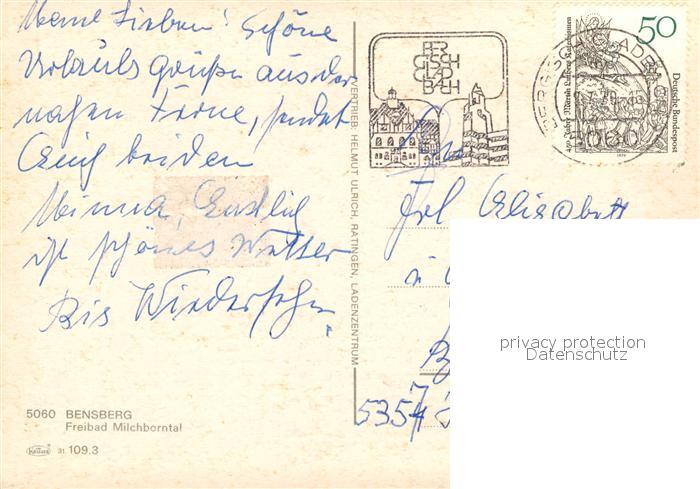 Meine Lieben! Schöne
Urlaubs grüße aus der
nahen Ferne, sendet
Euch beiden
Minna, Endlich
ist schönes Wetter
Bis Wiedersehn.
5060 BENSBERG
Freibad Milchborntal
31 109.3
VERTRIEB: HELMUT ULRICH, RATINGEN, LADENZENTRUM
BER
GISCH
GLAD
BACH
BERGISCH GLADBACH
5060
50
Deutsche Bundespost
450 Jahre Martin Luthers Katechismen
1979
An
Frl Elisabeth
5354
privacy protection
Datenschutz